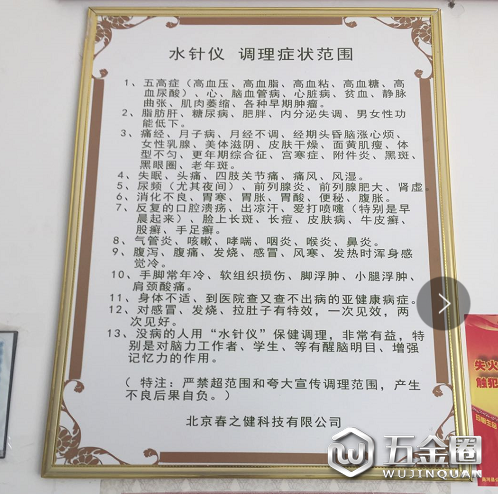 水针仪 调理症状范围
1、五高症（高血压、高血脂、高血粘、高血糖、高
血尿酸）、心、脑血管病、心脏病、贫血、静脉
曲张、肌肉萎缩、各种早期肿瘤。
2、脂肪肝、糖尿病、肥胖、内分泌失调、男女性功
能低下。
3、痛经、月子病、月经不调、经期头昏脑涨心烦、
女性乳腺、美体滋阴、皮肤干燥、面黄肌瘦、体
型不匀、更年期综合征、宫寒症、附件炎、黑斑、
黑眼圈、老年斑。
4、失眠、头痛、四肢关节痛、痛风、风湿。
5、尿频（尤其夜间）、前列腺炎、前列腺肥大、肾虚
6、消化不良、胃寒、胃胀、胃酸、便秘、腹胀。
7、反复的口腔溃疡、出凉汗、爱打喷嚏（特别是早
晨起来）、脸上长斑、长痘、皮肤病、牛皮癣、
股癣、手足癣。
8、气管炎、咳嗽、哮喘、咽炎、喉炎、鼻炎。
9、腹泻、腹痛、发烧、感冒、风寒、发热时浑身感
觉冷。
10、手脚常年冷、软组织损伤、脚浮肿、小腿浮肿、
肩颈酸痛。
11、身体不适、到医院查又查不出病的亚健康病症。
12、对感冒、发烧、拉肚子有特效，一次见效，两
次见好。
13、没病的人用“水针仪”保健调理，非常有益，特
别是对脑力工作者、学生、等有醒脑明目、增强
记忆力的作用。
（特注：严禁超范围和夸大宣传调理范围，产生
不良后果自负。）
北京春之健科技有限公司
失火
触犯
五金圈
WUJINQUAN